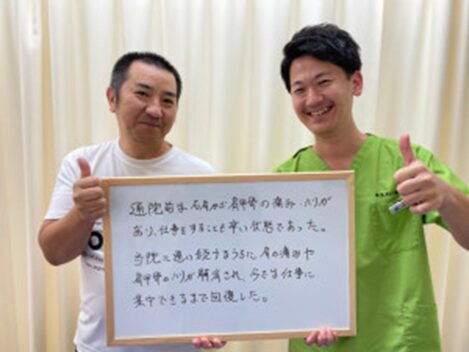 通院前は右肩から肩甲骨の痛み・ハリが
あり、仕事をすることも辛い状態であった。
当院に通い続けるうちに肩の痛みや
肩甲骨のハリが解消され、今では仕事に
集中できるまで回復した。